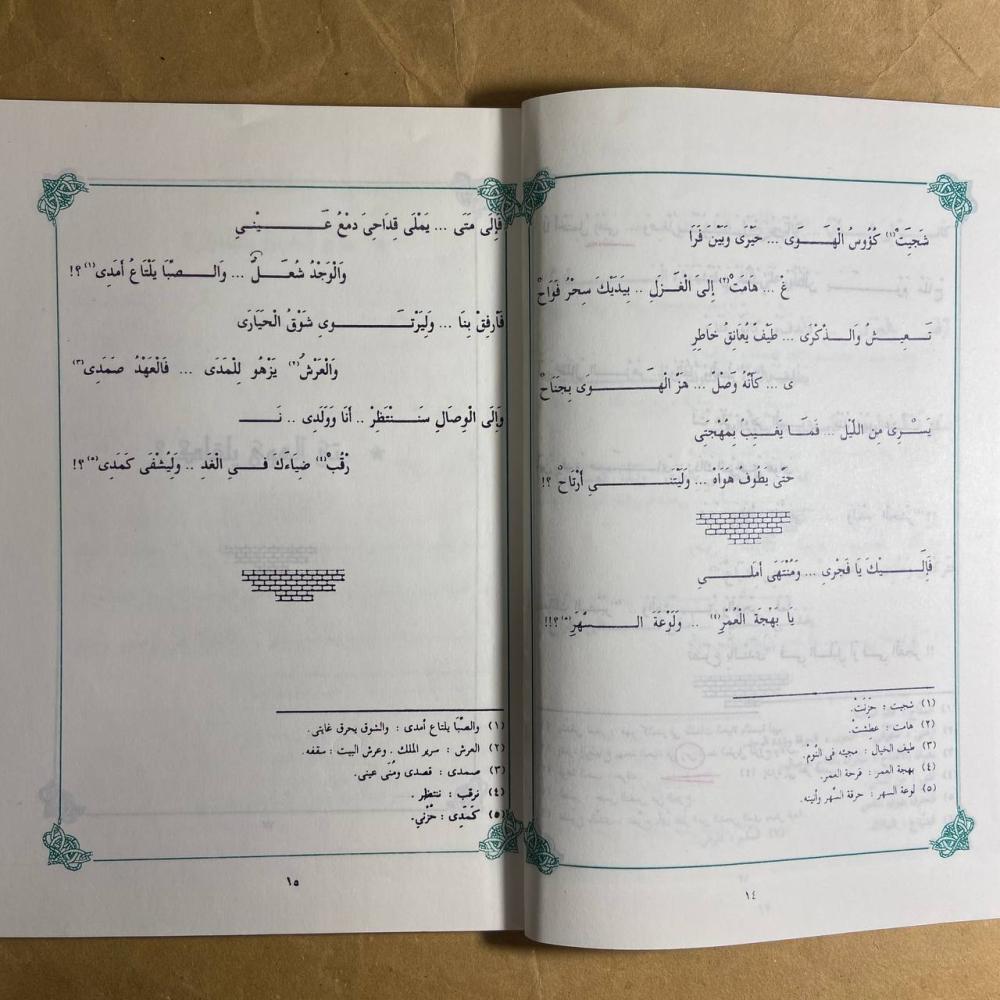 شَجِيَتْ(١) كُؤُوسُ الْهَـــوَى ... حَيْرَى وَبَيْنَ فَرَا
غْ ... هَامَتْ(٢) إِلَى الْغَزَلِ .. بِيَدَيْكَ سِحْرُ فَوَاحْ
تَـــعِيشُ وَالـــذِّكْرَى ... طَيْفٌ يُعَانِقُ خَاطِرِ
ى ... كَأَنَّهُ وَصْلٌ ... هَزَّ الْهَـــوى بِجَنَاحْ
يَسْـــرِى مِنَ اللَّيْلِ ... فَمَا يَغِيبُ بِمُهْجَتِى
حَتَّى يَطُوفُ هَوَاهْ ... وَلَيْتَنـــى أَرْتَاحْ ؟!
فَإِلَـــيْكَ يَا فَجْرِى ... وَمُنْتَهَى أَمَلـــي
يَا بَهْجَةَ الْعُمْرْ(٤) .. وَلَوْعَةَ الـــسَّهَرْ(٥)؟!!
(١) شجيت : حَزِنَتْ.
(٢) هامت : عطِشتْ.
(٣) طيف الخيال : مجيئه فى النومْ.
(٤) بهجة العمر : فرحة العمر.
(٥) لوعة السهر : حرقة السّهر وأنينه.
١٤
فَإِلَى مَتَى ... يَمْلَى قِدَاحِىَ دَمْعُ عَـــيْنِي
وَالْوَجْدُ شُعَلٌ ... وَالـــصِّبَا يَلْتَاعُ أَمَدِى(١)؟!
فَأَرْفِقْ بِنَا ... وَلِيَرْتَـــوِي شَوْقُ الْحَيَارَى
وَالْعَرْشُ(٢) يَزْهُو لِلْمَدَى ... فَالْعَهْدُ صَمَدِى(٣)
وَإِلَى الْوِصَالِ سَنَـــنْتَظِرْ .. أَنَا وَوَلَدِى .. نَـــ
رْقُبْ(٤) ضِيَاءَكَ فـــي الْغَدِ .. وَلِيُشْفَى كَمَدِى(٥)؟!
(١) والصِّبَا يلتاع أمدى : والشوق يحرق غايتى.
(٢) العرش : سرير الملك . وعرش البيت : سقفه.
(٣) صمدى : قصدى ومُنَى عينى.
(٤) نرقب : ننتظر .
(٥) كَمَدِى : حُزْنِي.
١٥